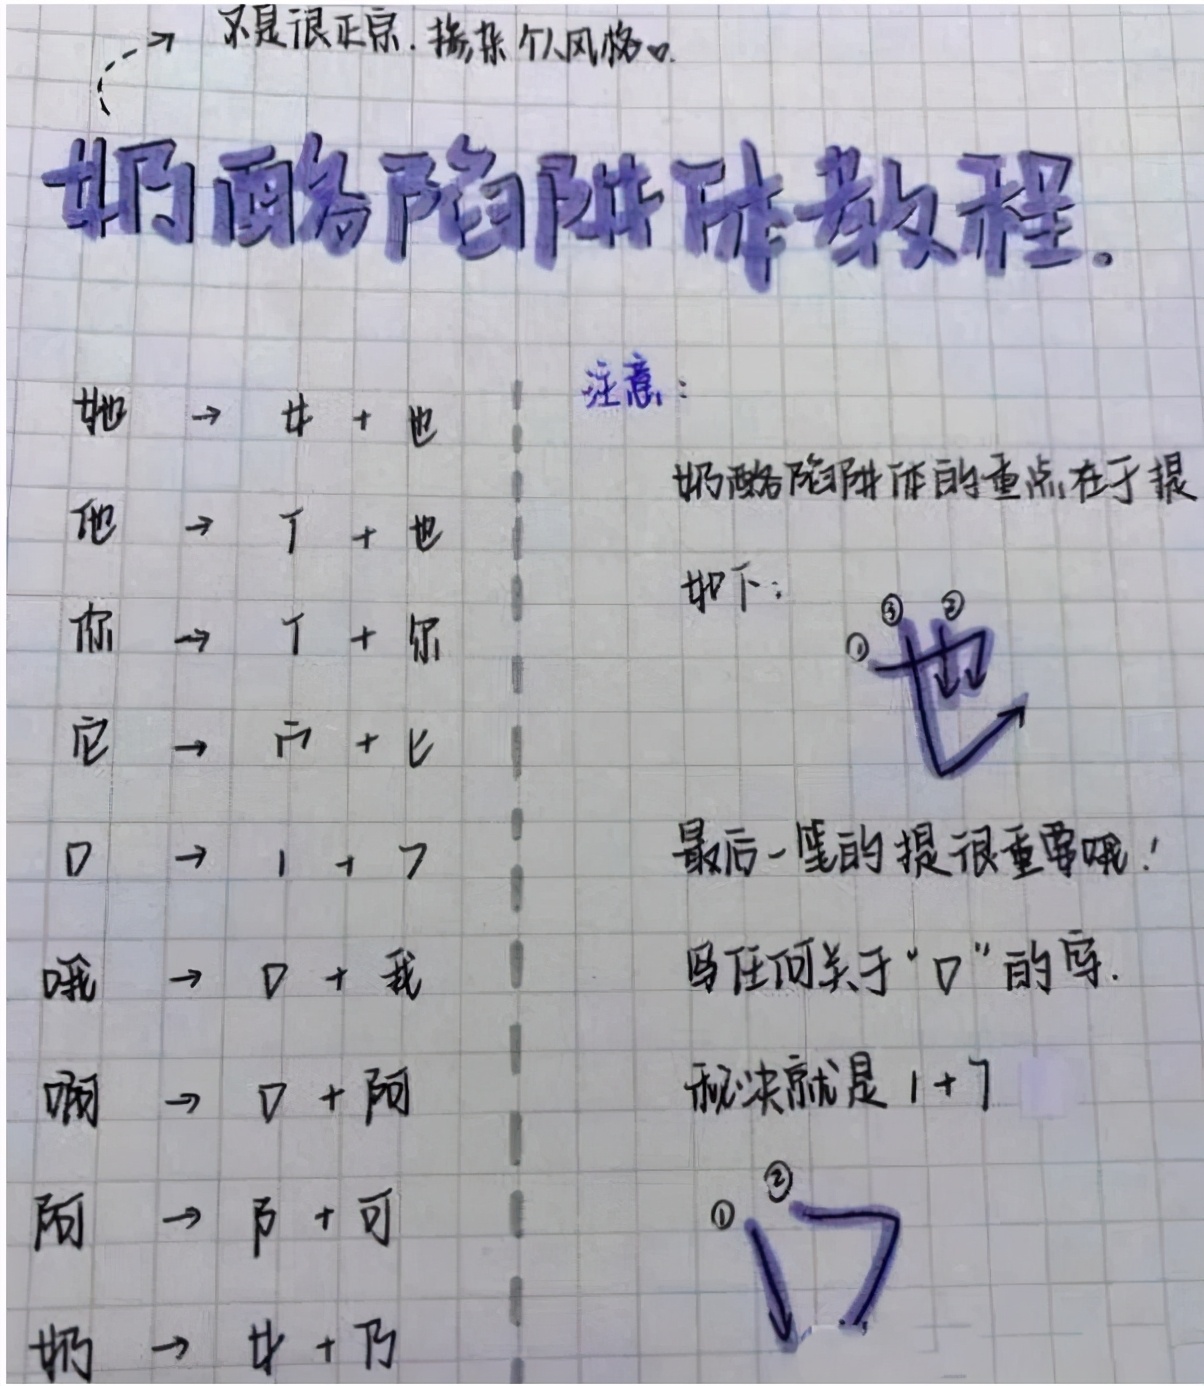 不是很正宗.掺杂个人风格。
奶酪陷阱体教程.
她 → 女 + 也
他 → 亻 + 也
你 → 亻 + 尔
它 → 宀 + 匕
口 → 1 + 7
哦 → 口 + 我
啊 → 口 + 阿
阿 → 阝 + 可
奶 → 女 + 乃
注意:
奶酪陷阱体的重点在于提
如下:
① ③ ②
也
最后一笔的提很重要哦!
写任何关于“口”的字.
秘决就是 1+7
① ②